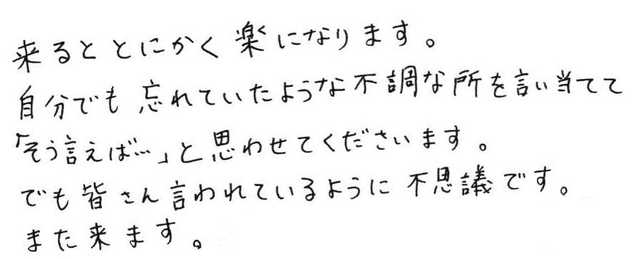 来るととにかく楽になります。
自分でも忘れていたような不調な所を言い当てて
「そう言えば…」と思わせてくださいます。
でも皆さん言われているように不思議です。
また来ます。